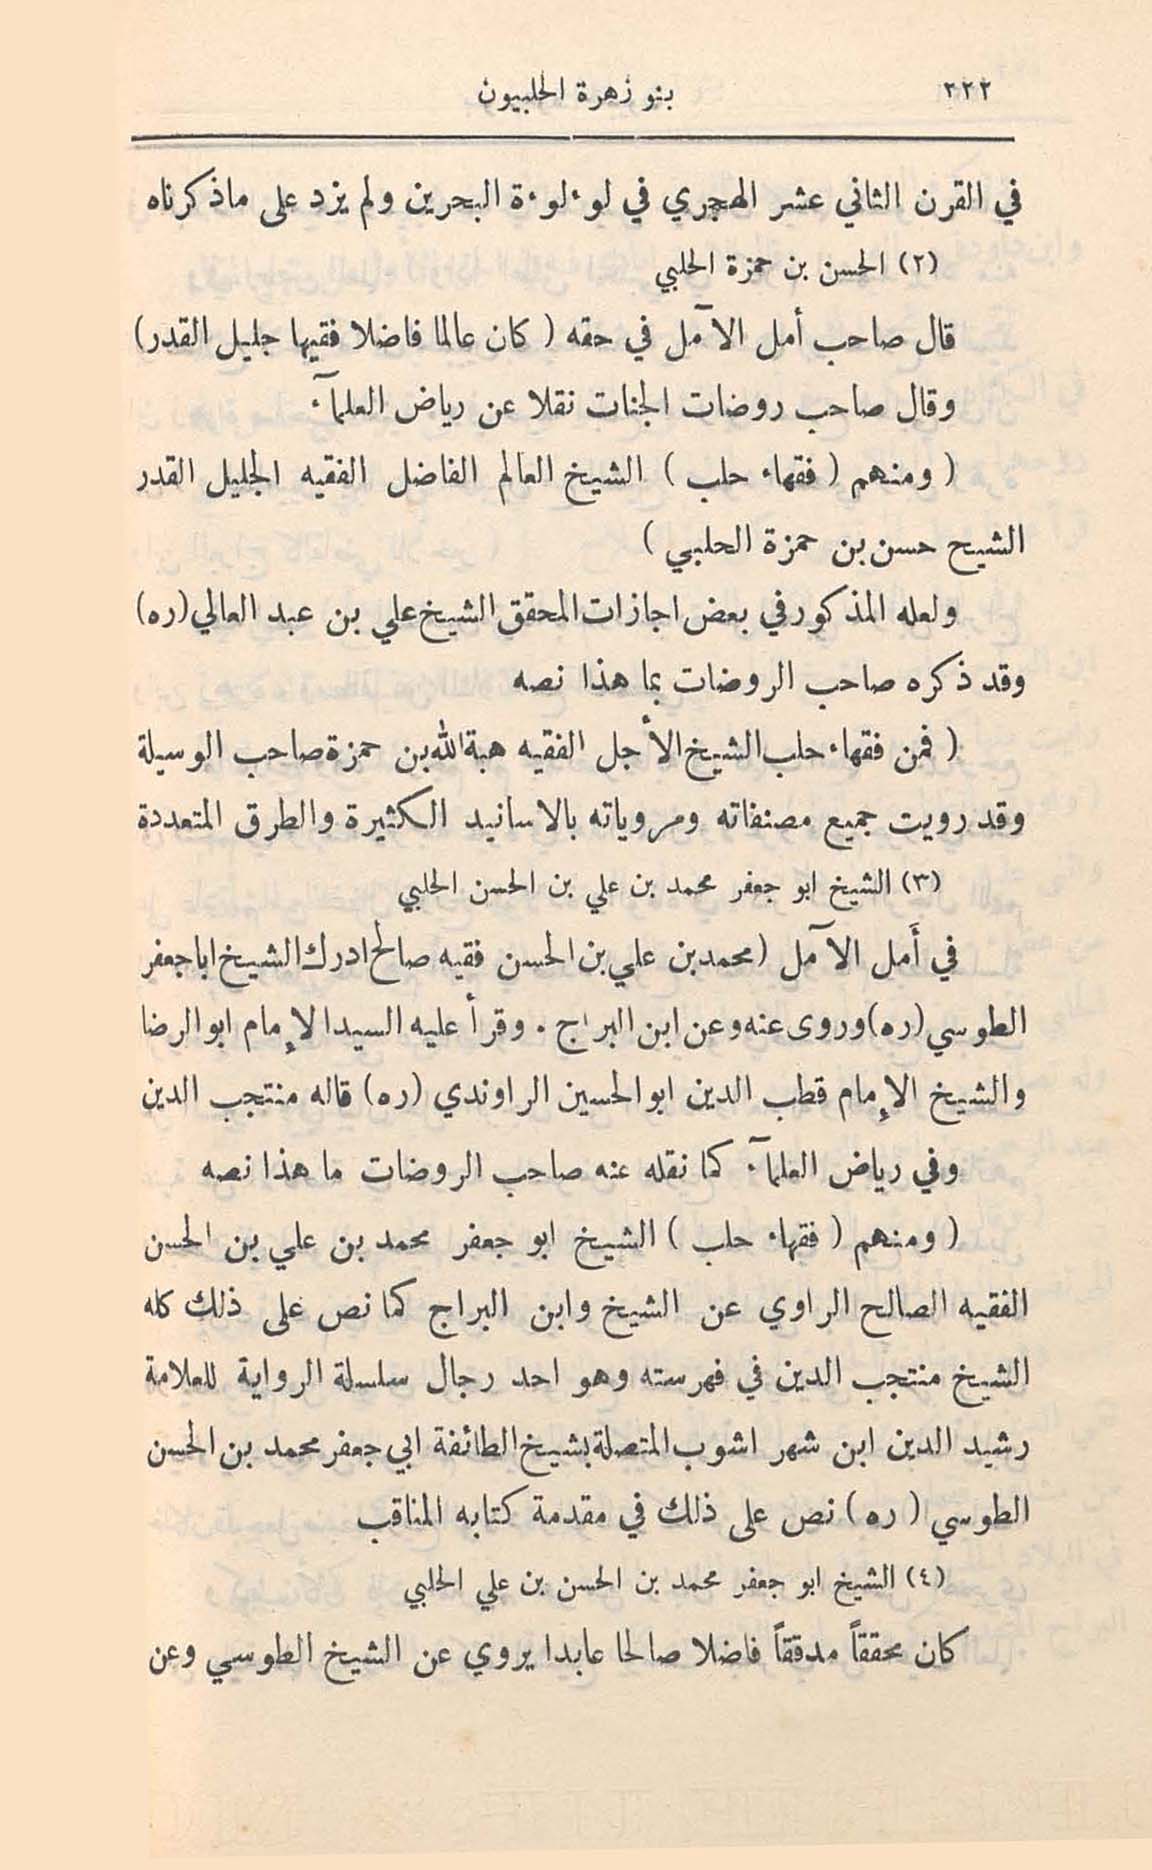 ٢٢٢
بنو زهرة الحلبيون
في القرن الثاني عشر الهجري في لوءلوءة البحرين ولم يزد على ماذكرناه
(٢) الحسن بن حمزة الحلبي
قال صاحب أمل الآمل في حقه ( كان عالما فاضلا فقيها جليل القدر)
وقال صاحب روضات الجنات نقلا عن رياض العلمآء
( ومنهم ( فقهاء حلب ) الشيخ العالم الفاضل الفقيه الجليل القدر
الشيح حسن بن حمزة الحلبي )
ولعله المذكور في بعض اجازات المحقق الشيخ علي بن عبد العالي (ره)
وقد ذكره صاحب الروضات بما هذا نصه
( فمن فقهاء حلب الشيخ الأجل الفقيه هبة الله بن حمزة صاحب الوسيلة
وقد رويت جميع مصنفاته ومروياته بالاسانيد الكثيرة والطرق المتعددة
(٣) الشيخ ابو جعفر محمد بن علي بن الحسن الحلبي
في أَمل الآمل (محمد بن علي بن الحسن فقيه صالح ادرك الشيخ اباجعفر
الطوسي (ره) وروى عنه وعن ابن البراج . وقرأ عليه السيد الإمام ابو الرضا
والشيخ الإمام قطب الدين ابو الحسين الراوندي (ره) قاله منتجب الدين
وفي رياض العلمآء كما نقله عنه صاحب الروضات ما هذا نصه
( ومنهم ( فقهاء حلب ) الشيخ ابو جعفر محمد بن علي بن الحسن
الفقيه الصالح الراوي عن الشيخ وابن البراج كما نص على ذلك كله
الشيخ منتجب الدين في فهرسته وهو احد رجال سلسلة الرواية للعلامة
رشيد الدين ابن شهر اشوب المتصلة بشيخ الطائفة ابي جعفر محمد بن الحسن
الطوسي ( ره ) نص على ذلك في مقدمة كتابه المناقب
(٤) الشيخ ابو جعفر محمد بن الحسن بن علي الحلبي
كان محققاً مدققاً فاضلا صالحا عابدا يروي عن الشيخ الطوسي وعن